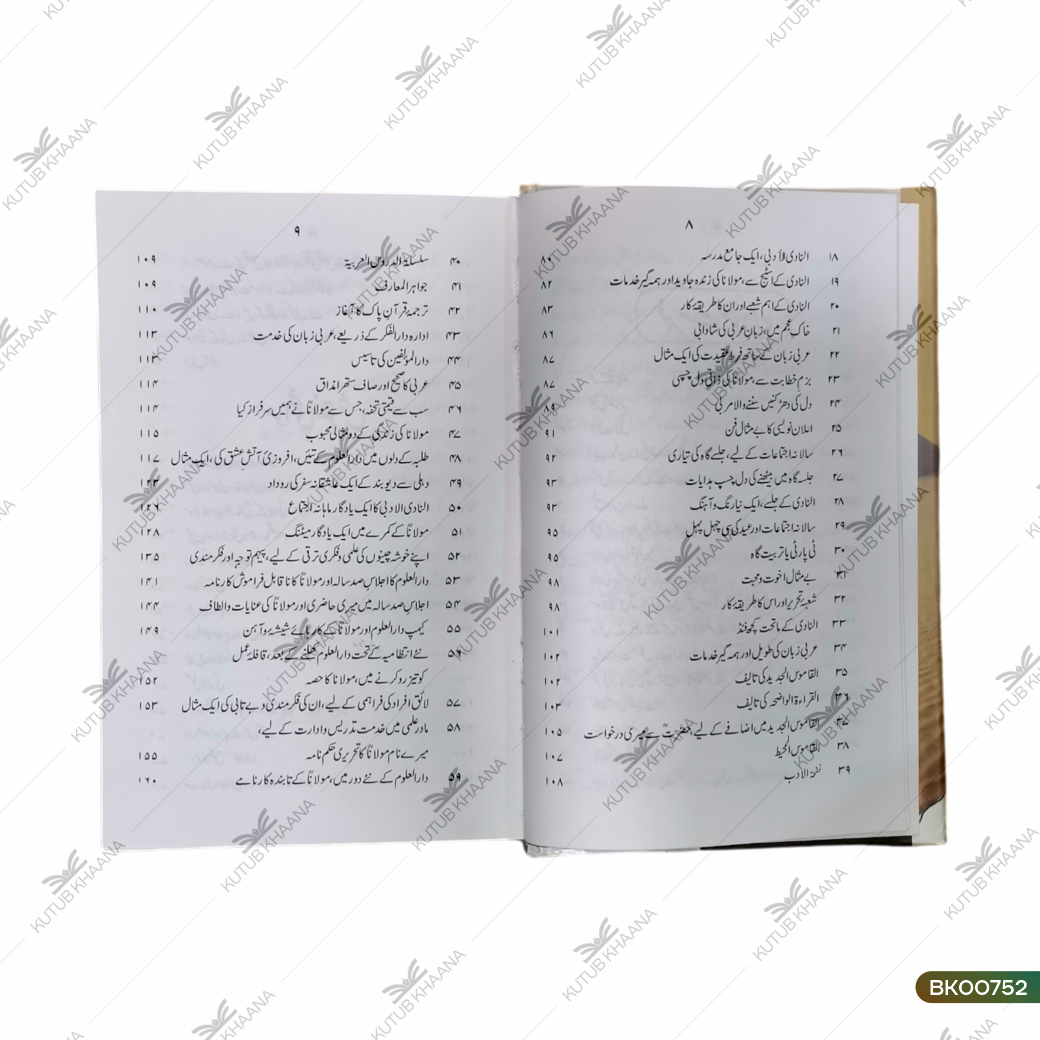 ۸
۱۸ النادی الأدبی، ایک جامع مدرسہ ۸۰
۱۹ النادی کے اسٹیج سے، مولانا کی زندہ جاوید اور ہمہ گیر خدمات ۸۲
۲۰ النادی کے اہم شعبے اور ان کا طریقۂ کار ۸۳
۲۱ خاکِ عجم میں، زبانِ عربی کی شادابی ۸۶
۲۲ عربی زبان کے ساتھ فرطِ عقیدت کی ایک مثال ۸۷
۲۳ بزمِ خطابت سے، مولانا کی ذاتی دل چسپی ۸۷
۲۴ دل کی دھڑکنیں سننے والا مربی ۸۹
۲۵ اعلان نویسی کا بے مثال فن ۹۱
۲۶ سالانہ اجتماعات کے لیے، جلسے گاہ کی تیاری ۹۲
۲۷ جلسہ گاہ میں بیٹھنے کی دل چسپ ہدایات ۹۳
۲۸ النادی کے جلسے، ایک نیا رنگ و آہنگ ۹۳
۲۹ سالانہ اجتماعات اور عید کی سی چہل پہل ۹۵
۳۰ ٹی پارٹی یا تربیت گاہ ۹۵
۳۱ بے مثال اخوت و محبت ۹۸
۳۲ شعبۂ تحریر اور اس کا طریقۂ کار ۹۸
۳۳ النادی کے ماتحت کچھ فنڈ ۱۰۱
۳۴ عربی زبان کی طویل اور ہمہ گیر خدمات ۱۰۲
۳۵ القاموس الجدید کی تالیف ۱۰۲
۳۶ القراءۃ الواضحۃ کی تالیف ۱۰۳
۳۷ القاموس الجدید میں اضافے کے لیے، حضرتؒ سے میری درخواست ۱۰۵
۳۸ القاموس المحیط ۱۰۷
۳۹ نفحۃ الادب ۱۰۸
۹
۴۰ سلسلۃ الدروس العربیۃ ۱۰۹
۴۱ جواہر المعارف ۱۰۹
۴۲ ترجمۂ قرآنِ پاک کا آغاز ۱۱۰
۴۳ ادارہ دار الفکر کے ذریعے، عربی زبان کی خدمت ۱۱۳
۴۴ دار المؤلفین کی تاسیس ۱۱۳
۴۵ عربی کا صحیح اور صاف ستھرا مذاق ۱۱۴
۴۶ سب سے قیمتی تحفہ، جس سے مولاناؒ نے ہمیں سرفراز کیا ۱۱۴
۴۷ مولانا کی زندگی کے دو مثالی محبوب ۱۱۵
۴۸ طلبہ کے دلوں میں دار العلوم کے تئیں، افروزیٔ آتشِ عشق کی، ایک مثال ۱۱۷
۴۹ دہلی سے دیوبند کے ایک عاشقانہ سفر کی روداد ۱۲۳
۵۰ النادی الادبی کا ایک یادگار ماہانہ اجتماع ۱۲۶
۵۱ مولاناؒ کے کمرے میں ایک یادگار میٹنگ ۱۲۸
۵۲ اپنے خوشہ چینوں کی علمی و فکری ترقی کے لیے، پیہم توجہ اور فکر مندی ۱۳۵
۵۳ دار العلوم کا اجلاسِ صد سالہ اور مولاناؒ کا ناقابلِ فراموش کارنامہ ۱۴۱
۵۴ اجلاسِ صد سالہ میں میری حاضری اور مولاناؒ کی عنایات و الطاف ۱۴۴
۵۵ کیمپ دار العلوم اور مولاناؒ کے کارہائے شیشہ و آہن ۱۴۹
۵۶ نئے انتظامیہ کے تحت دار العلوم کھلنے کے بعد، قافلۂ عمل
کو تیز رو کرنے میں، مولاناؒ کا حصہ ۱۵۲
۵۷ لائق افراد کی فراہمی کے لیے، ان کی فکر مندی و بے تابی کی ایک مثال ۱۵۳
۵۸ مادرِ علمی میں خدمتِ تدریس و ادارت کے لیے،
میرے نام مولاناؒ کا تحریری حکم نامہ ۱۵۵
۵۹ دار العلوم کے نئے دور میں، مولاناؒ کے تابندہ کارنامے ۱۶۰
KUTUB KHAANA
BK00752